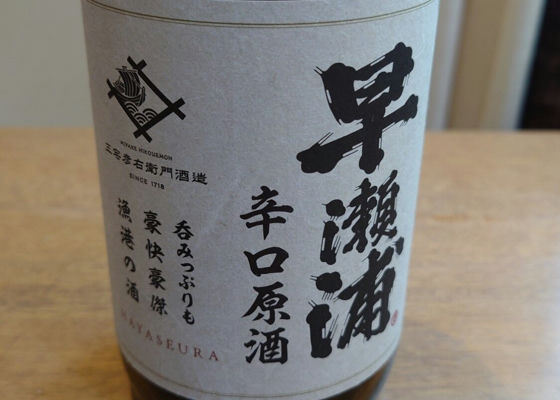 早瀬浦
辛口原酒
呑みっぷりも
豪快豪傑
漁港の酒
HAYASEURA
MIYAKE HIKOUEMON
三宅彦右衛門酒造
SINCE 1718